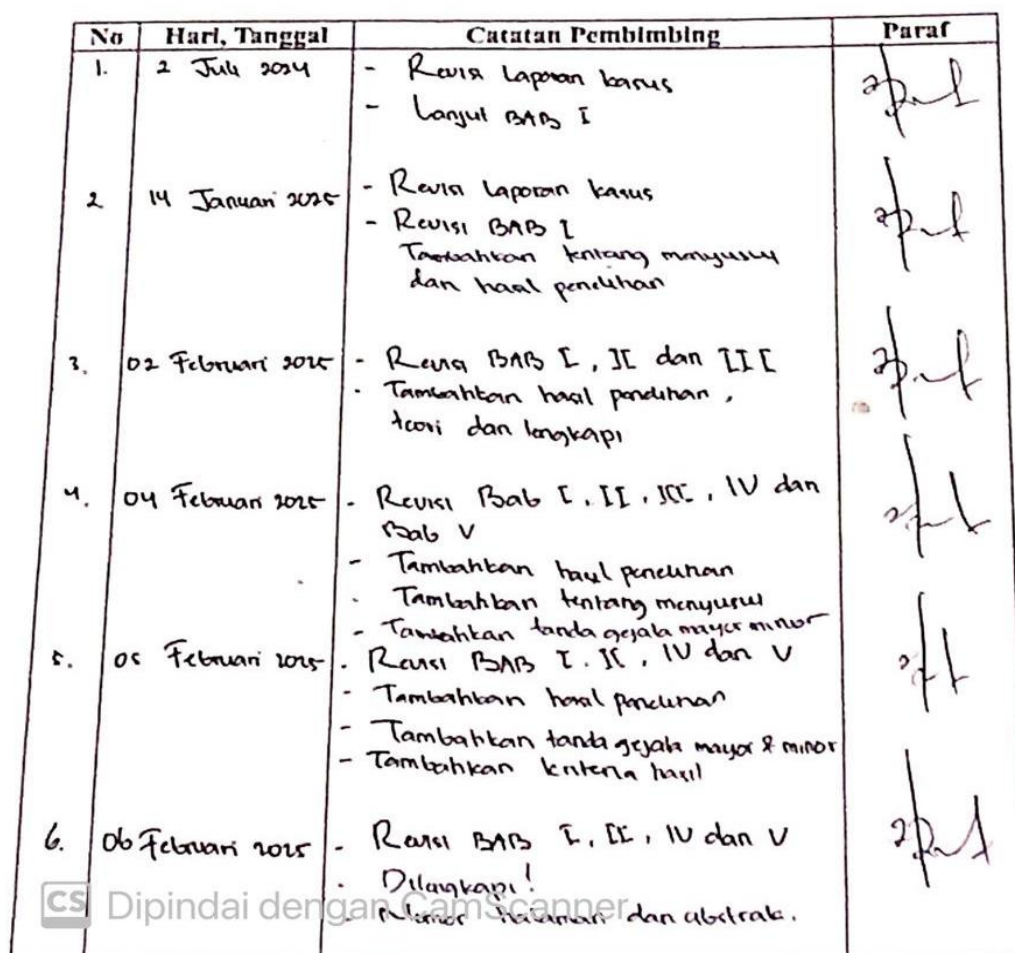 No Hari, Tanggal Catatan Pembimbing Paraf
1. 2 Juli 2024 - Revisi Laporan kasus
- Lanjut BAB I
2 14 Januari 2025 - Revisi Laporan kasus
- Revisi BAB I
Tambahkan tentang menyusui
dan hasil penelitian
3. 02 Februari 2025 - Revisi BAB I, II dan III
- Tambahkan hasil penelitian,
teori dan lengkapi
4. 04 Februari 2025 - Revisi Bab I, II, III, IV dan
Bab V
- Tambahkan hasil penelitian
- Tambahkan tentang menyusui
- Tambahkan tanda gejala mayor minor
5. 05 Februari 2025 - Revisi BAB I. II, IV dan V
- Tambahkan hasil penelitian
- Tambahkan tanda gejala mayor & minor
- Tambahkan kriteria hasil
6. 06 Februari 2025 - Revisi BAB I, II, IV dan V
- Dilengkapi!
- Nomor halaman dan abstrak.
CS Dipindai dengan CamScanner